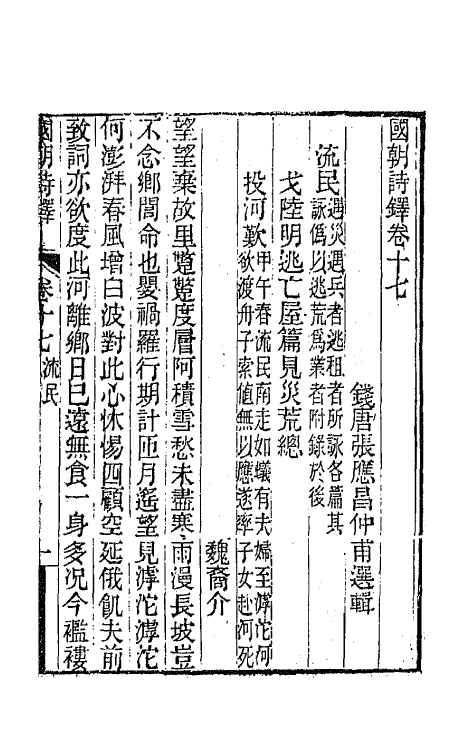 國朝詩鐸卷十七
錢唐張應昌仲甫選輯
流民
遇災遇兵者逃租者所詠各篇其
詠僞以逃荒爲業者附錄於後
戈陸明逃亡屋篇見災荒總
投河歎
甲午春流民南走如蟻有夫婦至滹沱河
欲渡舟子索値無以應遂率子女赴河死
魏裔介
望望棄故里蹩蹩度層阿積雪愁未盡寒雨漫長坡豈
不念鄉閭命也嬰禍羅行期計匝月遙望見滹沱滹沱
何澎湃春風增白波對此心怵惕四顧空延俄飢夫前
致詞亦欲度此河離鄉日已遠無食一身多況今襤褸
國朝詩鐸
卷十七
流民
一